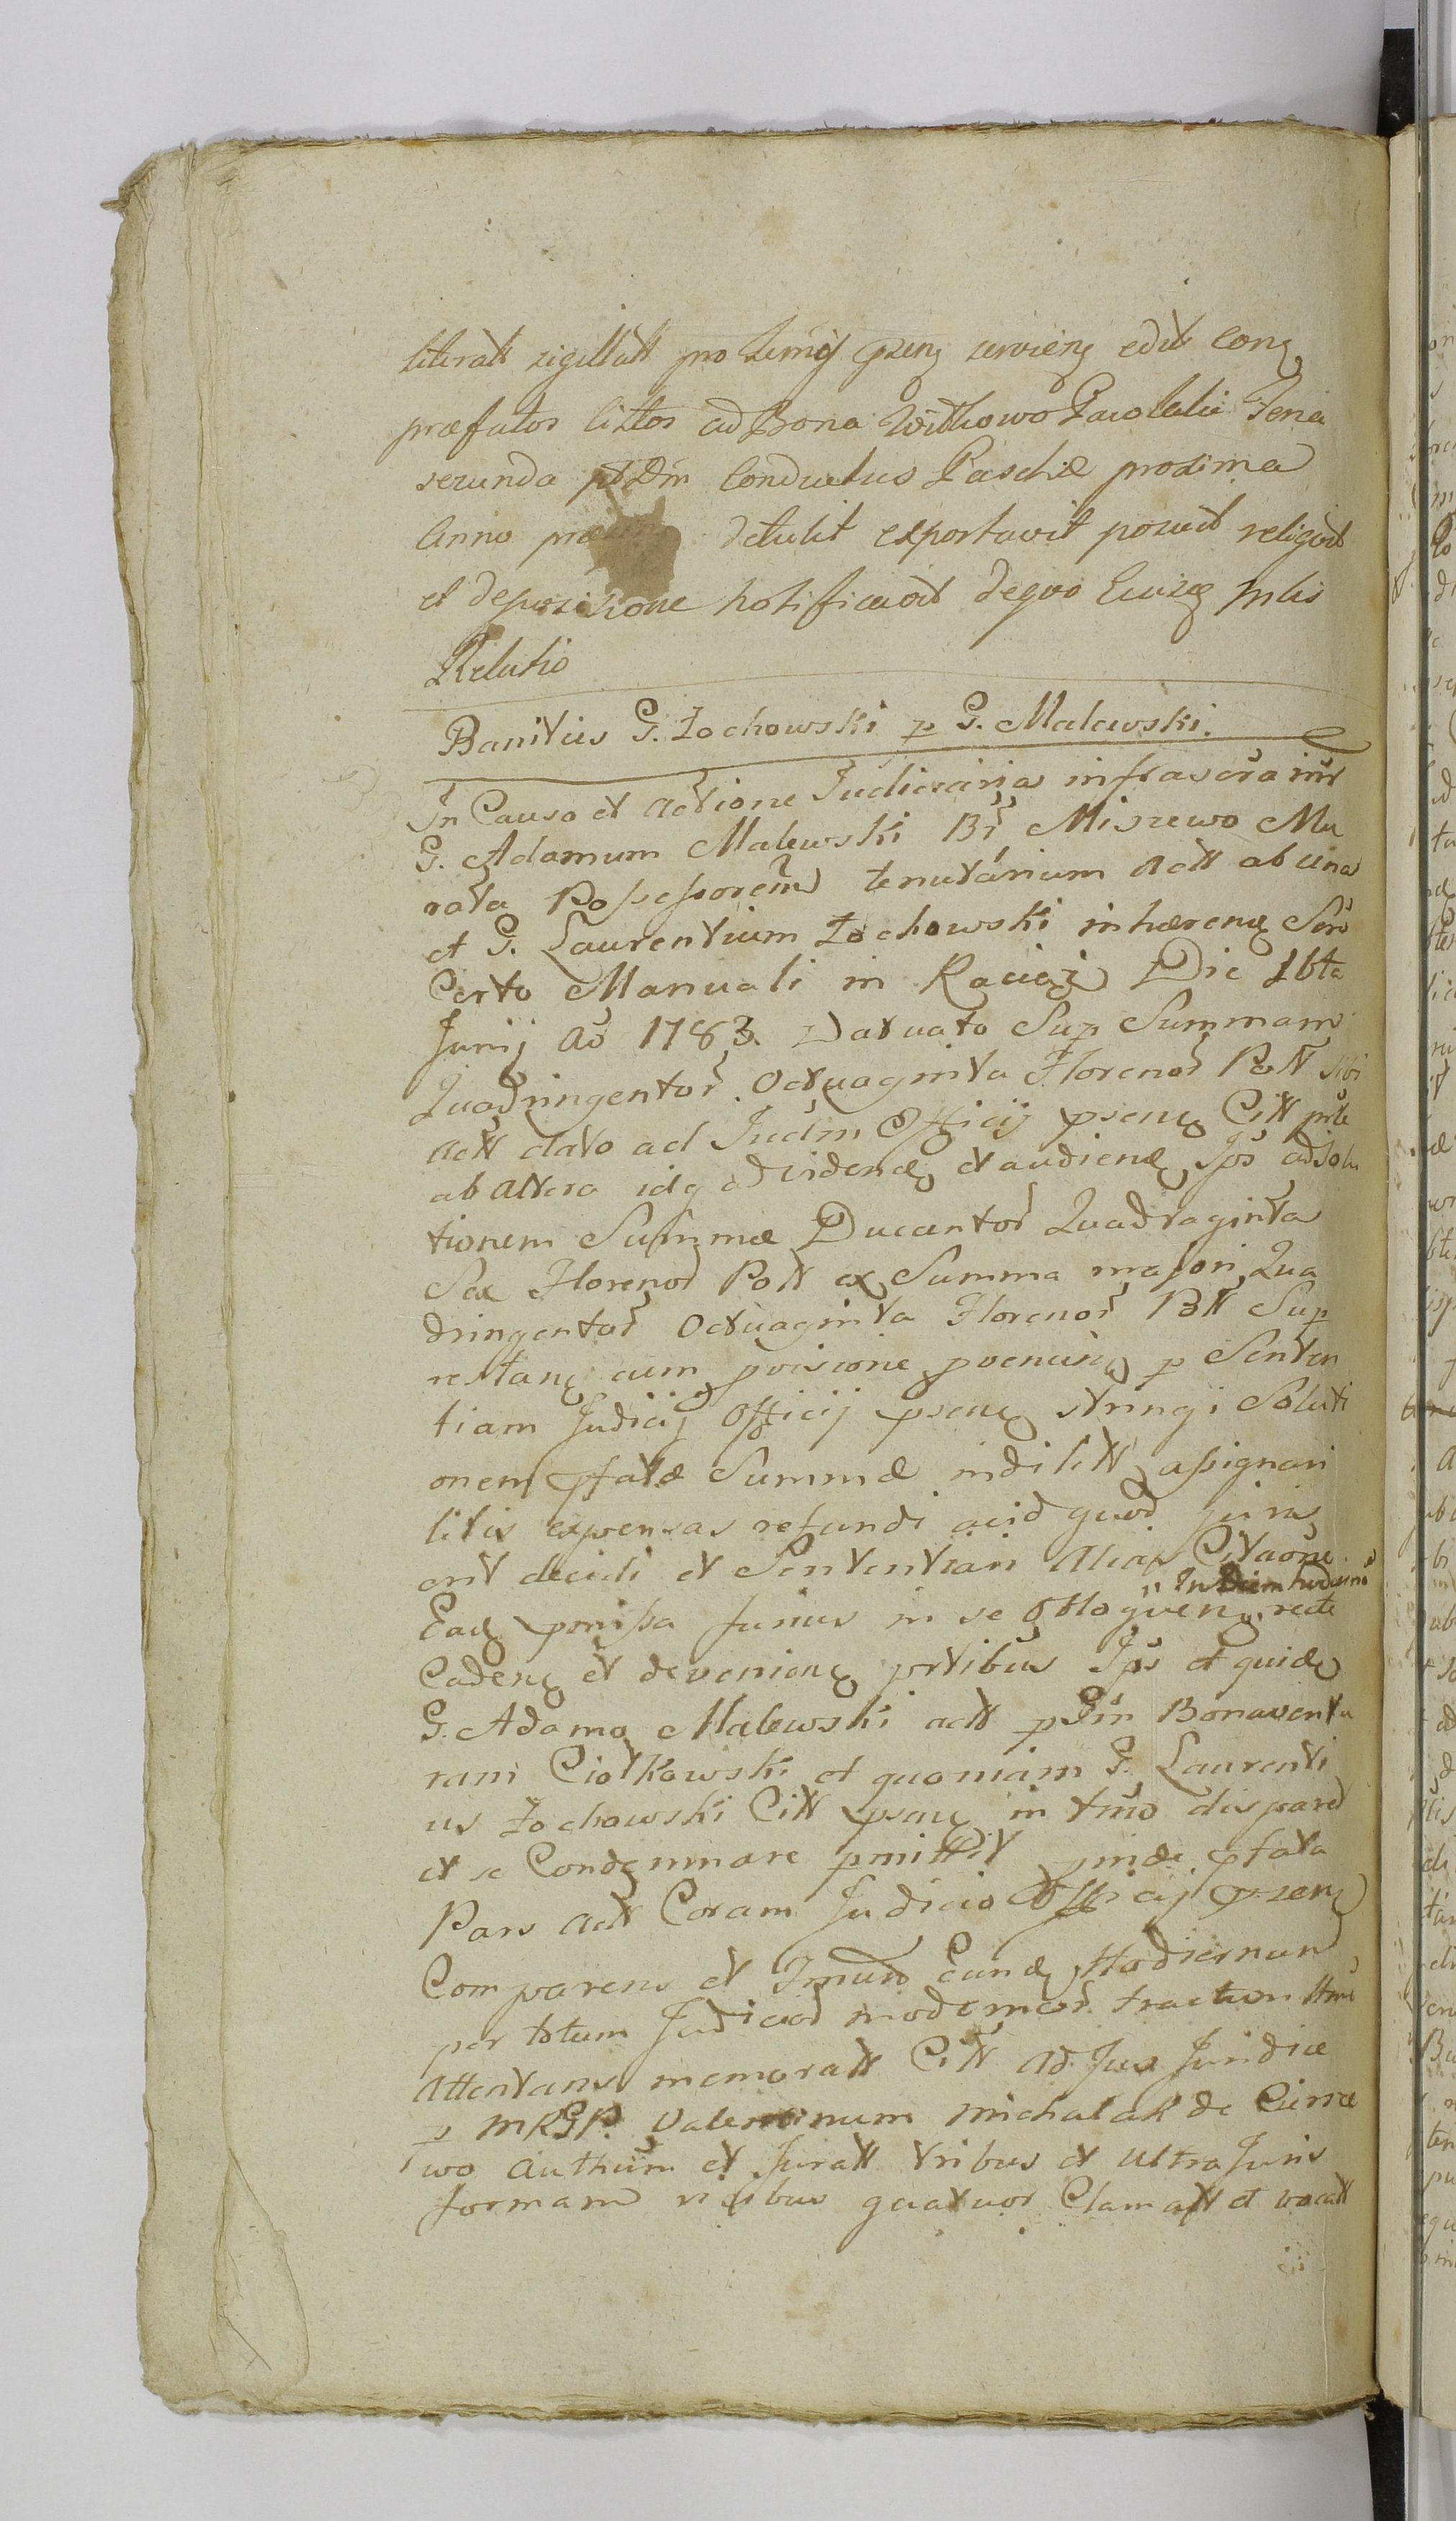 literatt sigillatt pro termį psenę servienę edit Conę
præfatos Cittos ad Bona Witkowo Pawolelie Feria
secunda pt Dm Conductus Paschæ proxima
Anno detulit exportavit posuit reliqvit
et depositione notificavit deqvo Eiusdę
Relatio
Banitus G. Żochowski p G. Malewski.
In Causa et actione Judiciaria infrascra intr
G. Adamum Malewski Br Miszewo Mu
rata Possessorem tenutarium Actt ab una
et G. Laurentium Żochowski inhærenę Scri
Certo Manuali in Raciąż Die 16ta
Junij Aō 1783. Datuato Sup Summam
Quadringentor Octuaginta Florenor Poll sibi
actt dato ad Judm Officij psenę Citt prte
ab altera idq ad videndę et audiendę Jps adsolu
tionem Summæ Ducentor Quadraginta
Sex Florenor Poll ex Summa majori Qua
dringentor Octuaginta Florenor Poll Sup
restanę cum pvisione pvenienę p Senten
tiam Judicij Officij psenę stringi Soluti
onem pfatæ Summæ indilitt assignari
litis expensas refundi acid quod juris
erit decidi et Sententiari Alias Citaōne
In Diem hodiernū
Eadę pmissa furius in se obloqvenę recte
Cadenę et devenienę prtibus Jps et quidę
G. Adamo Malewski actt p Gm Bonaventu
ram Ciołkowski et quoniam G. Laurenti
us Żochowski Citt psenę in tmo disparet
et se Condemnare pmittit pinde pfata
Pars Actt Coram Judicio Officij psenę
Comparens et Tmum Eundę Hodiernum
per totum Judicior modernor tractum
Attentans memoratt Citt ad Jus Juridice
p MRGP. Valentinum Michalak de Cisze
wo Authum et Juratt tribus et ultra Juris
formam vicibus quatuor Clamatt et vocatt